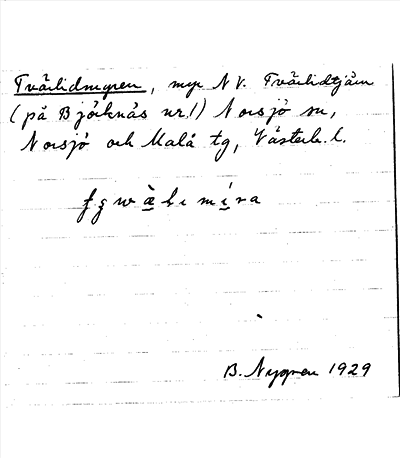 Tvärlidmyren, myr NV. Tvärlidtjärn
(på Björknäs nr 1) Norsjö sn,
Norsjö och Malå tg, Västerb. l.
B. Nygren 1929